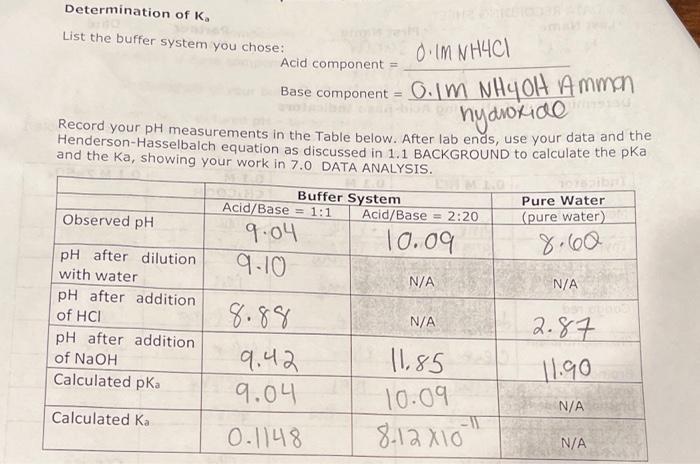 Determination of Kₐ
List the buffer system you chose:
Acid component = 0.1M NH4Cl
Base component = 0.1M NH4OH Ammon
hydroxide
Record your pH measurements in the Table below. After lab ends, use your data and the
Henderson-Hasselbalch equation as discussed in 1.1 BACKGROUND to calculate the pKa
and the Ka, showing your work in 7.0 DATA ANALYSIS.
Buffer System Pure Water
Acid/Base = 1:1 Acid/Base = 2:20 (pure water)
Observed pH 9.04 10.09 8.60
pH after dilution
with water 9.10 N/A N/A
pH after addition
of HCl 8.88 N/A 2.87
pH after addition
of NaOH 9.42 11.85 11.90
Calculated pKₐ 9.04 10.09 N/A
Calculated Kₐ 0.1148 8.12 X10⁻¹¹ N/A